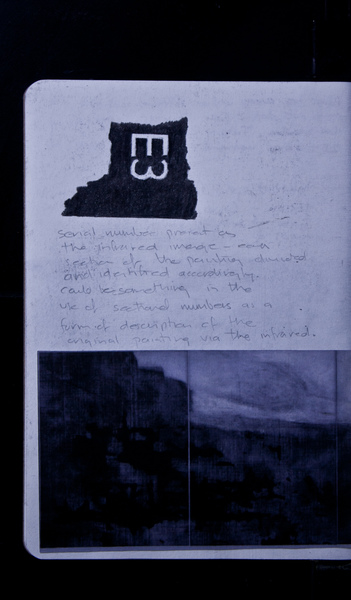 E3
serial number present on
the infrared image - each
section of the painting divided
and identified accordingly.
could be something in the
use of sectional numbers as a
form of description of the
original painting via the infrared.